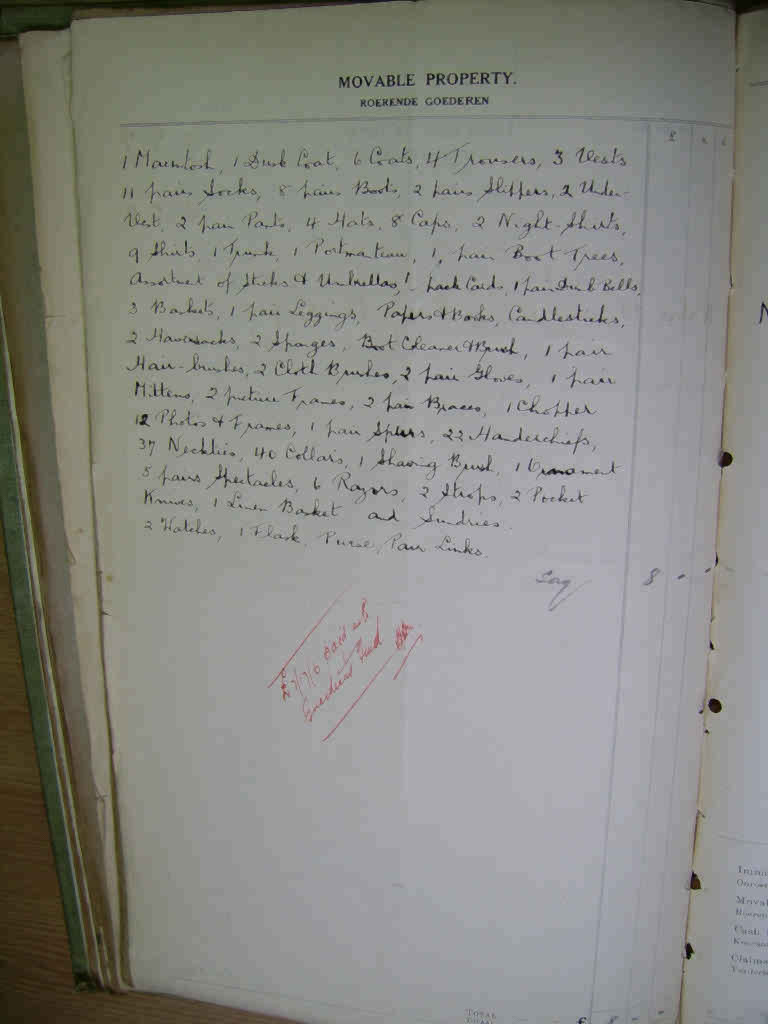 MOVABLE PROPERTY.
ROERENDE GOEDEREN
£ s d
1 Macintosh, 1 Dust Coat, 6 Coats, 4 Trousers, 3 Vests
11 pairs Socks, 8 pairs Boots, 2 pairs Slippers, 2 Under-
Vest, 2 pair Pants, 4 Hats, 8 Caps, 2 Night-Shirts,
9 Shirts, 1 Trunk, 1 Portmanteau, 1, pair Boot Trees,
Assortmet of Sticks & Umbrellas, 1 pack Cards, 1 pair Dumb Bells,
3 Baskets, 1 pair Leggings, Papers & Books, Candlesticks,
2 Haversacks, 2 Sponges, Boot Cleaner & Brush, 1 pair
Hair-brushes, 2 Cloth Brushes, 2 pair Gloves, 1 pair
Mittens, 2 picture Frames, 2 pair Braces, 1 Chopper
12 Photos & Frames, 1 pair Spurs, 22 Handerchiefs,
37 Neckties, 40 Collars, 1 Shaving Brush, 1 Ornament
5 pairs Spectacles, 6 Razors, 2 Strops, 2 Pocket
Knives, 1 Linen Basket and Sundries.
2 Watches, 1 Flask, Purse, Pair Links.
Say 8 - -
£7/7/6 paid into
Guardians Fund
TOTAL
£ 8 - -
Immo
Onroe
Moval
Roeren
Cash
Claims